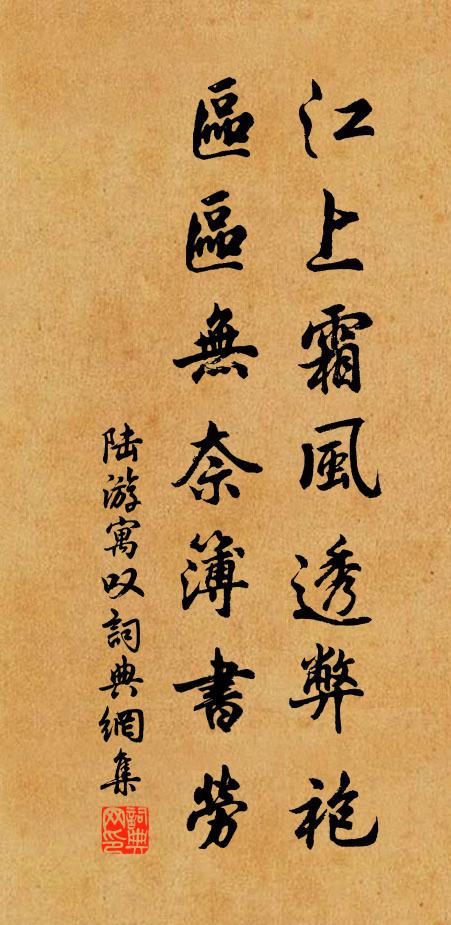 江上霜風透弊袍
區區無奈簿書勞
陆游寓叹詞典網集
詞典网印